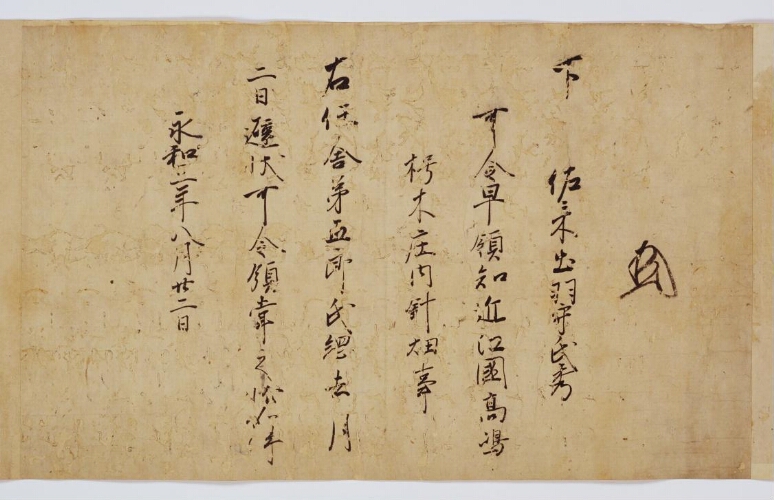 下　佐々木出羽守氏秀
可令早領知近江國高嶋
朽木庄内針畑事
右任舎弟五郎氏綱去月
二日避状可令領掌之状如件
永和三年八月廿二日